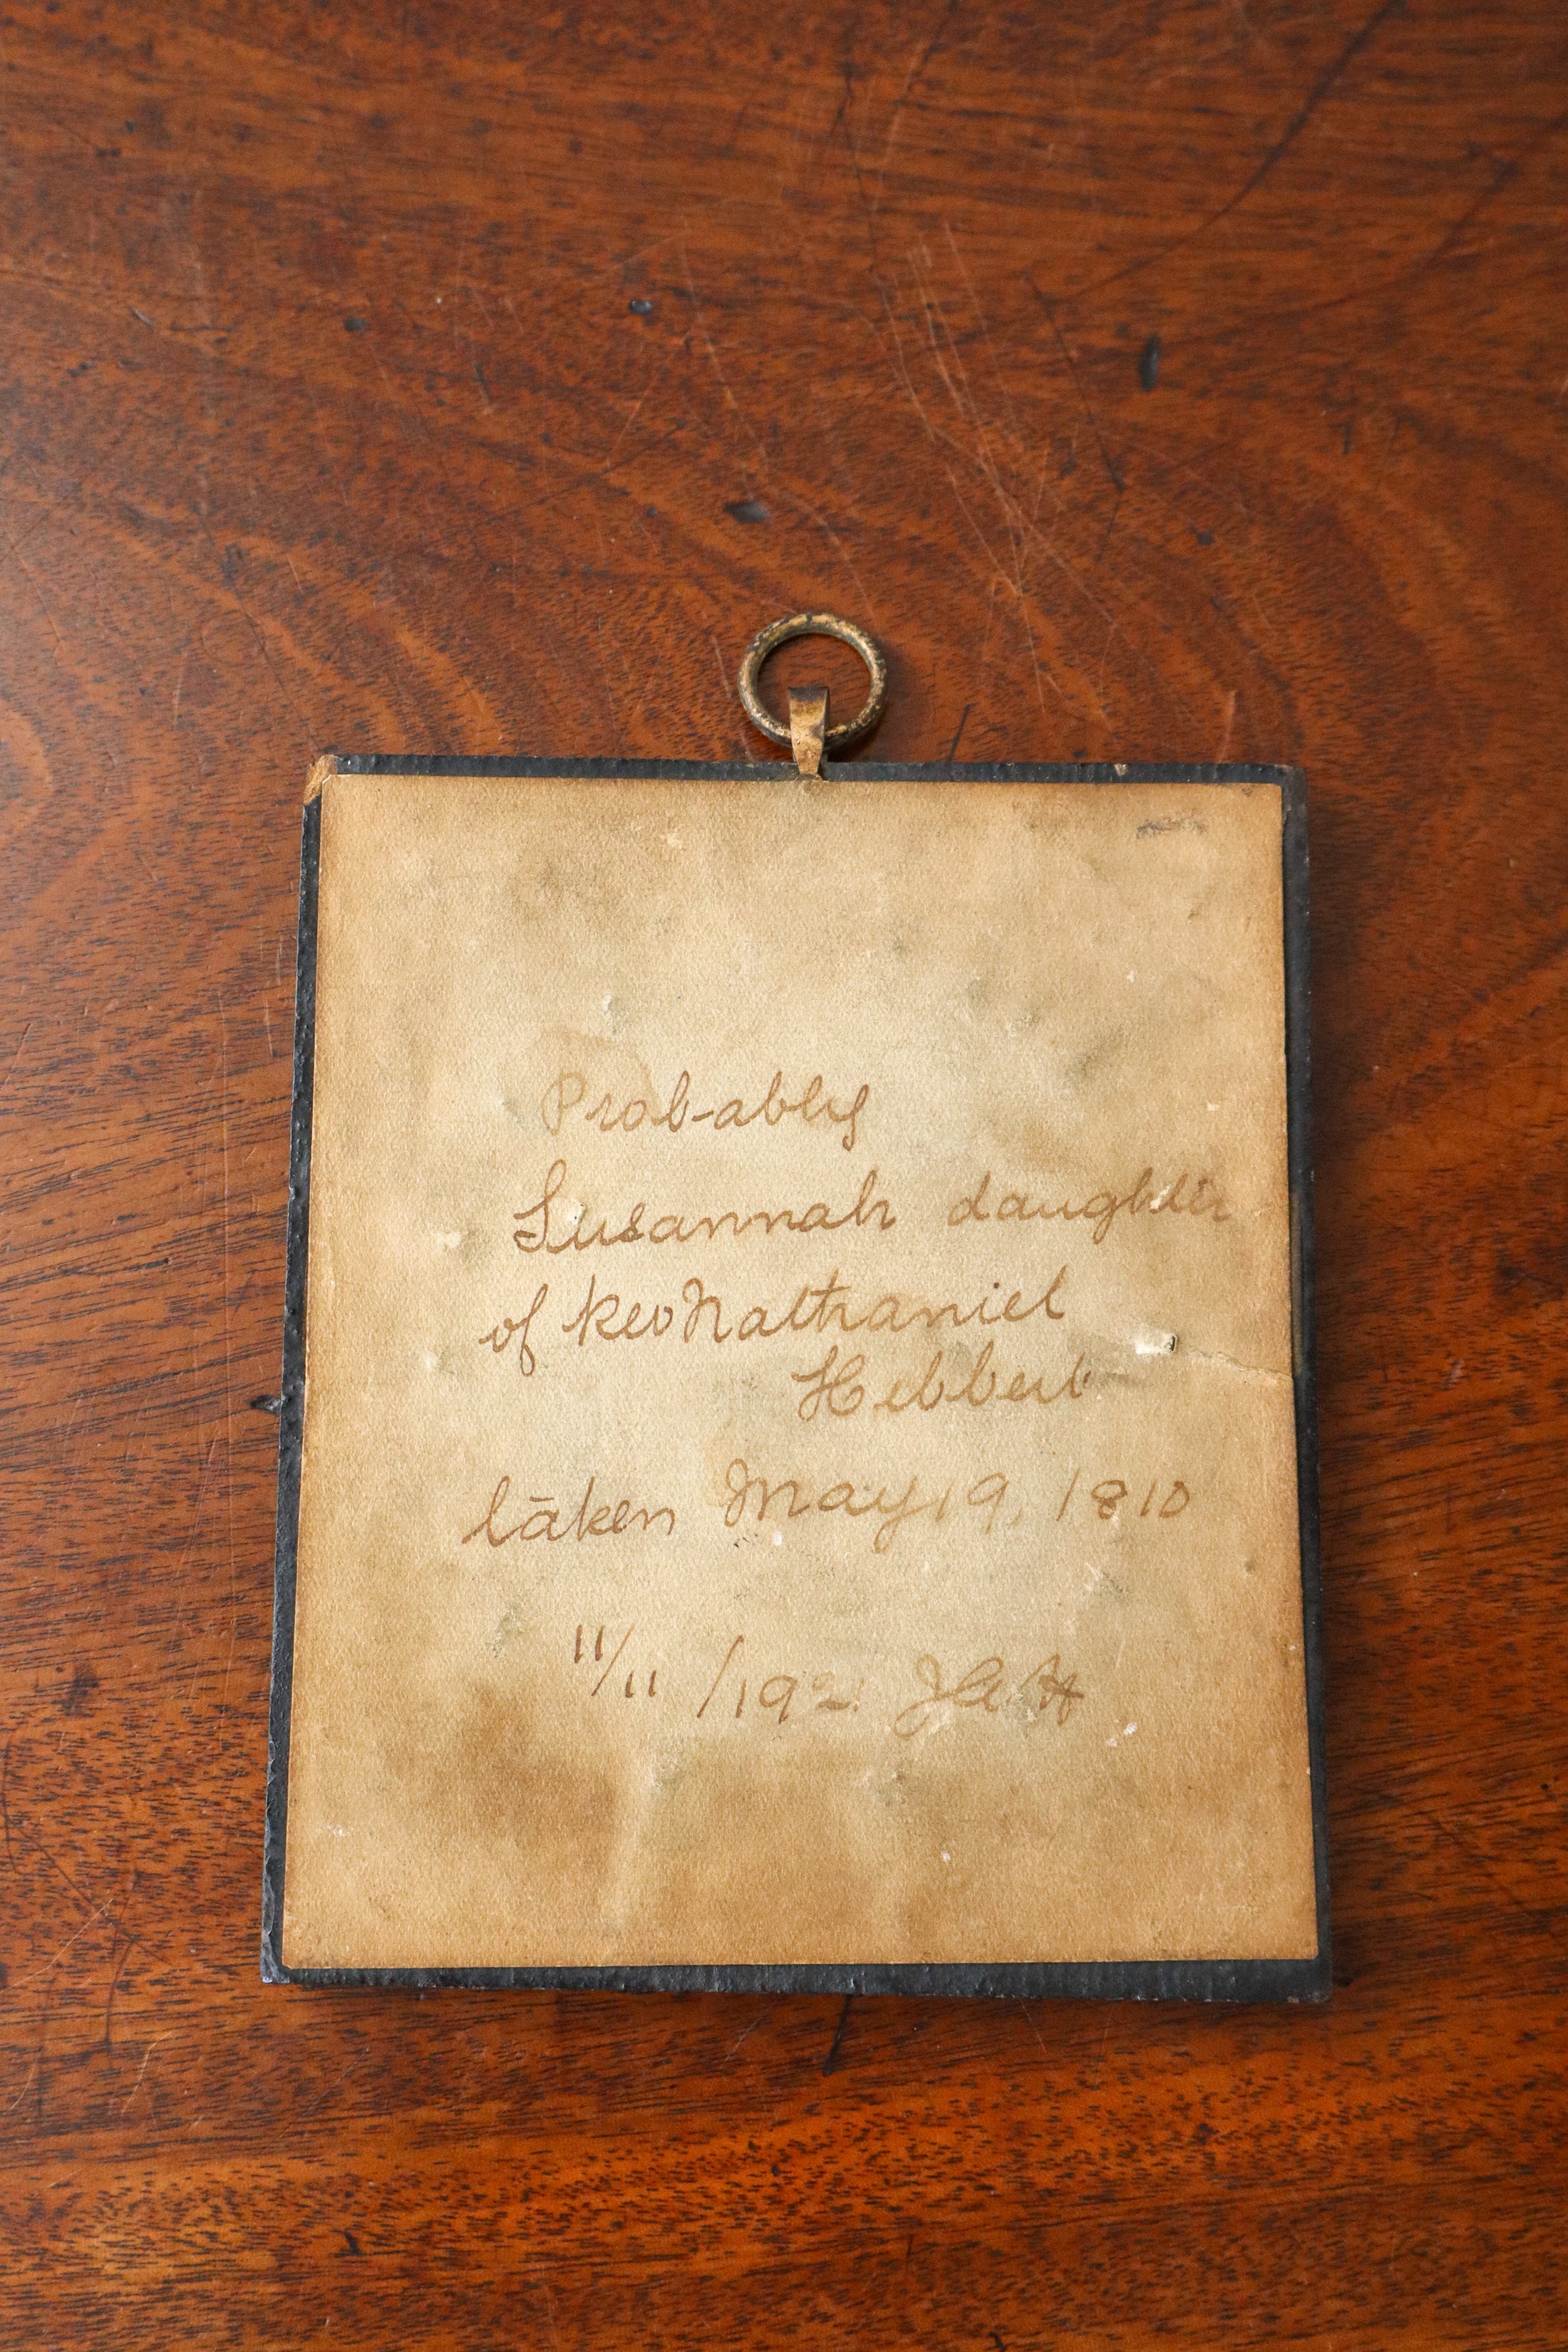 Prob-ably
Susannah daughter
of Rev Nathaniel
Hebbert
taken May 19, 1810
11/11/192 J A H